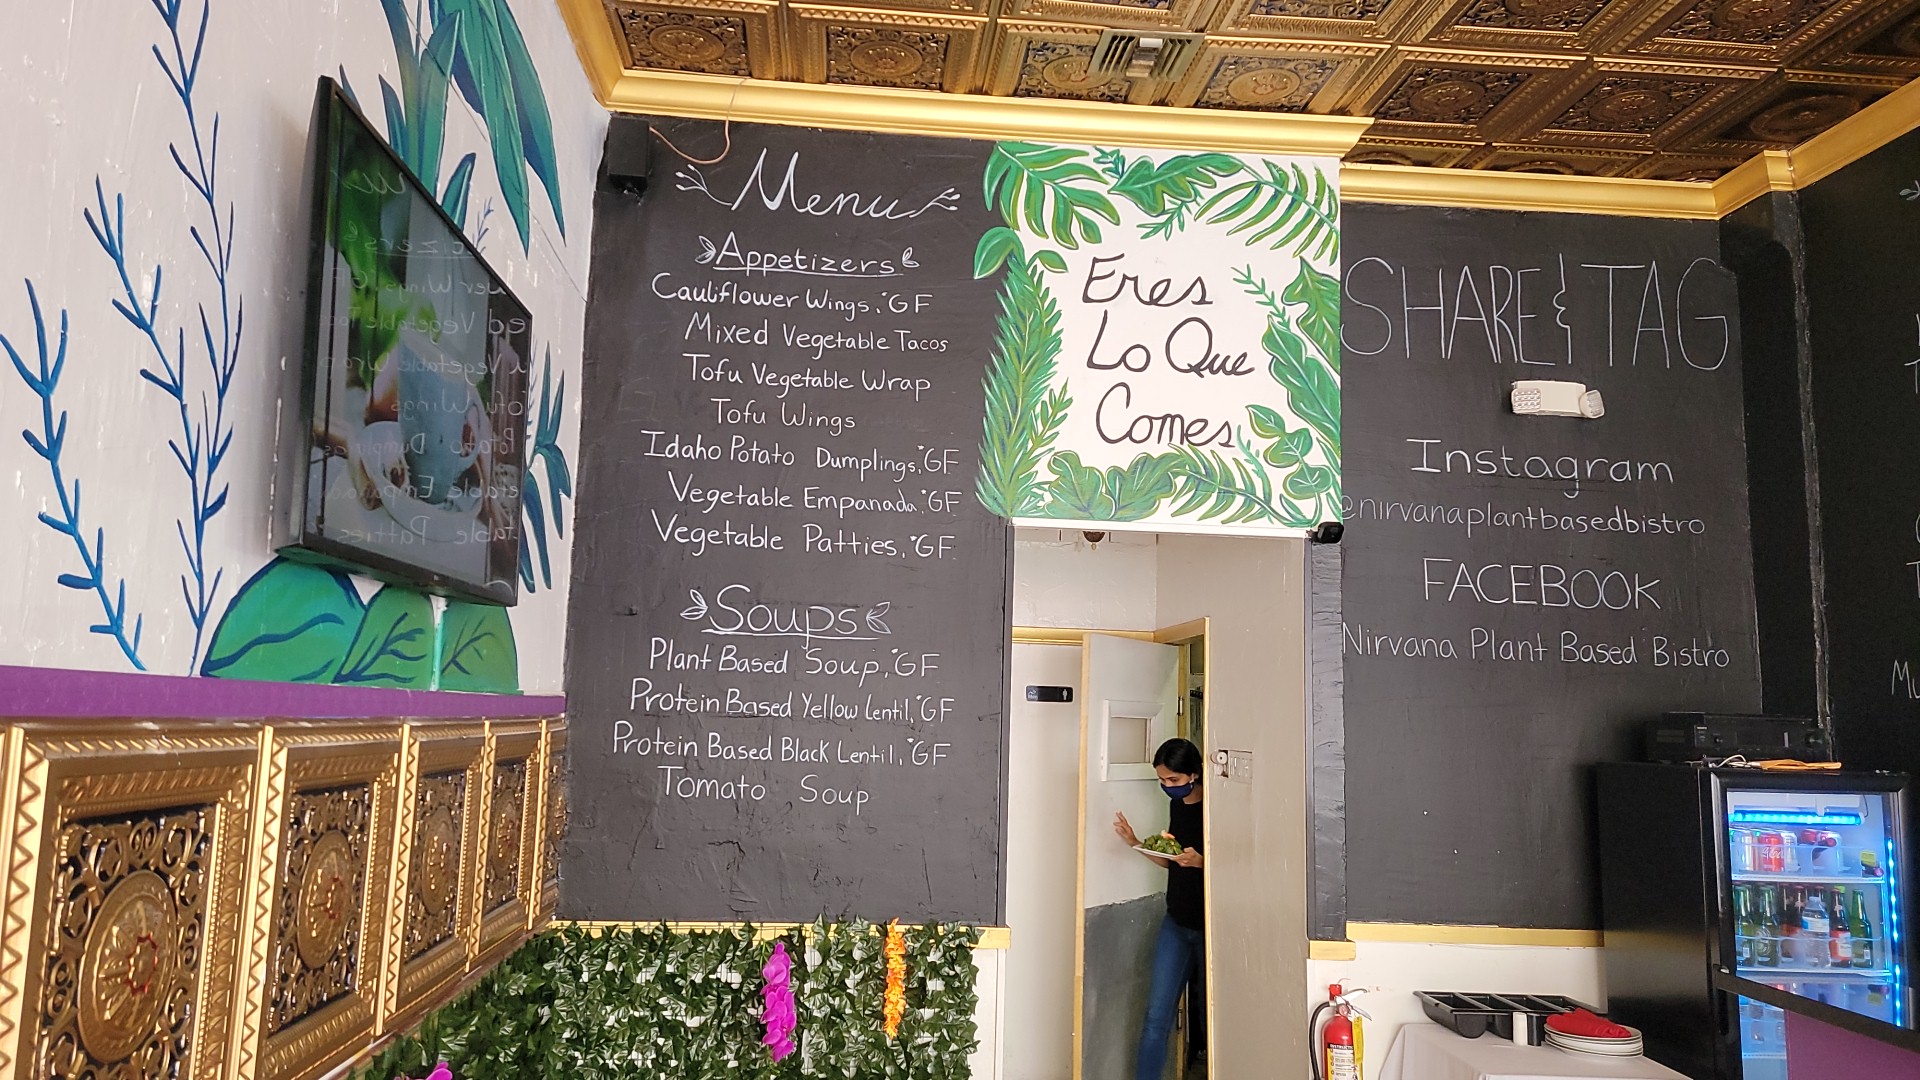 Menu
Appetizers
Cauliflower Wings, *GF
Mixed Vegetable Tacos
Tofu Vegetable Wrap
Tofu Wings
Idaho Potato Dumplings, *GF
Vegetable Empanada, *GF
Vegetable Patties, *GF
Soups
Plant Based Soup, *GF
Protein Based Yellow Lentil, *GF
Protein Based Black Lentil, *GF
Tomato Soup
Eres
Lo Que
Comes
SHARE & TAG
Instagram
@nirvanaplantbasedbistro
FACEBOOK
Nirvana Plant Based Bistro